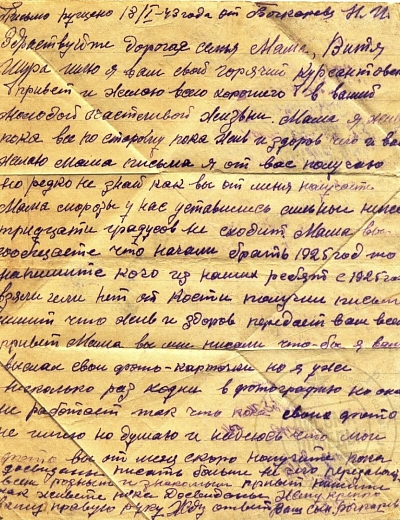 Письмо пущено 18/I-43 года от Бочкарева Н. И.
Здраствуйте дорогая семья Мама, Витя
Шура шлю я вам свой горячий курсантовск
привет и желаю всего хорошего в вашей
молодой счастливой жизни. Мама я живу
пока все по старому пока жив и здоров что и вам
желаю Мама письма я от вас получаю
но редко не знай как вы от меня получаете
Мама морозы у нас уставились сильные ниже
тридцати градусов не сходит Мама вы
сообщаете что начали брать 1925 год то
напишите кого из наших ребят с 1925 года
взяли или нет от Кости получил письмо
пишит что жив и здоров передает вам всем
привет Мама вы мне писали что-бы я вам
выслал свои фото-карточки но я уже
несколько раз ходил в фотографию но она
не работает так что пока своих фото
не имею но думаю и надеюсь что мои
фото вы от меня скоро получите пока
досвиданье писать больше нечего передавайте
всем родным и знакомым привет пишите
как живете пока досвиданье Жму крепко
вашу правую руку Жду ответ Ваш сын Бочкарев